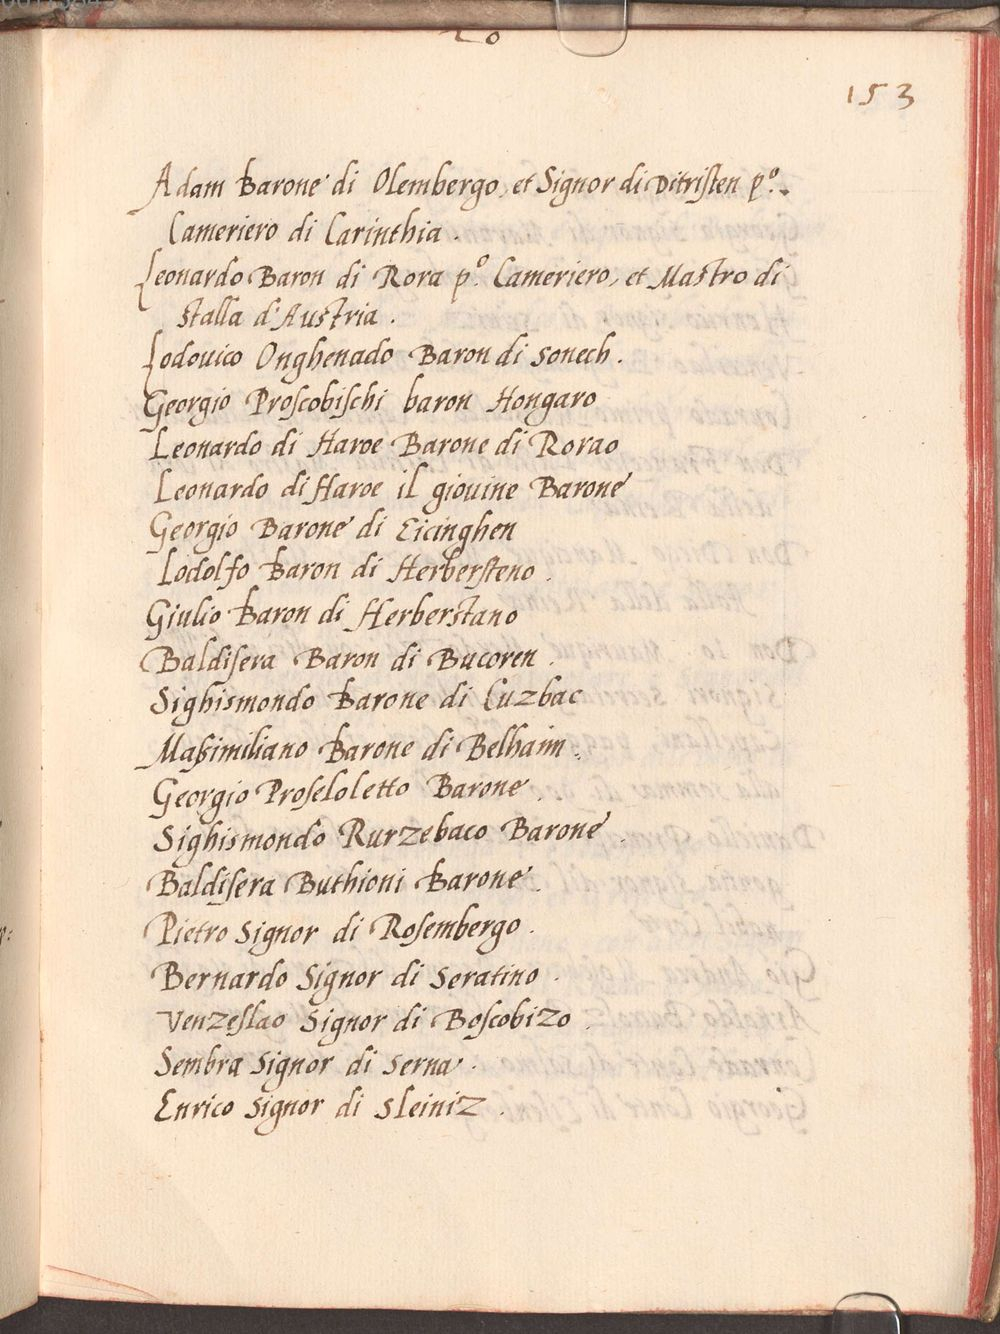 20
153
Adam Barone di Olembergo, et Signor di Ditristen p.º
Cameriero di Carinthia.
Leonardo Baron di Rora p.º Cameriero, et Mastro di
stalla d'Austria.
Lodouico Onghenado Baron di sonech.
Georgio Proscobischi baron Hongaro
Leonardo di Haroe Barone di Rorao
Leonardo di Haroe il giouine Barone
Georgio Barone di Eicinghen
Lodolfo Baron di Herbersteno.
Giulio Baron di Herberstano
Baldisera Baron di Bucoren.
Sighismondo Barone di Cuzbac
Massimiliano Barone di Belhaim.
Georgio Proseloletto Barone.
Sighismondo Rurzebaco Barone.
Baldisera Buthioni Barone.
Pietro Signor di Rosembergo.
Bernardo Signor di Seratino.
Venzeslao Signor di Boscobizo.
Sembra Signor di Serna.
Enrico Signor di Sleiniz.